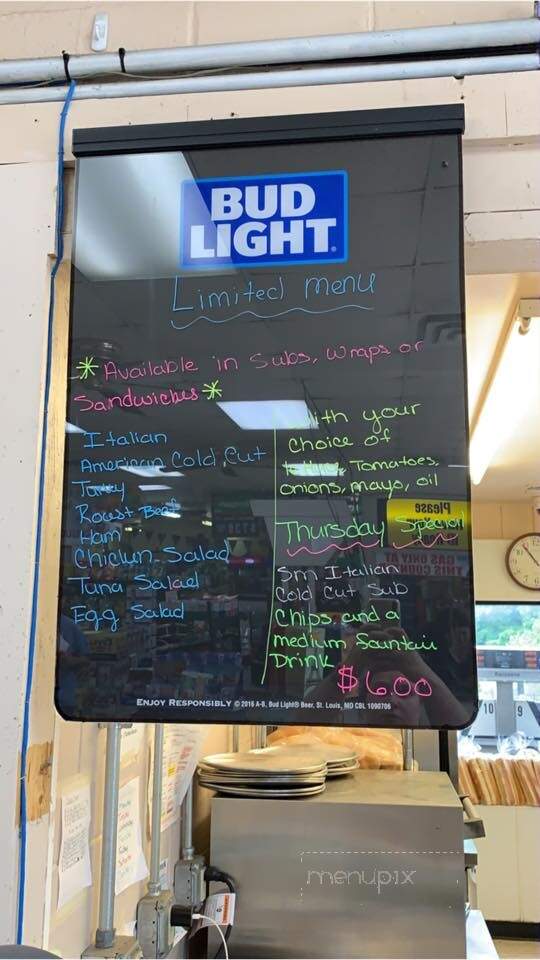 BUD
LIGHT
Limited menu
* Available in Subs, Wraps or
Sandwiches *
Italian
American Cold Cut
Turkey
Roast Beef
Ham
Chicken Salad
Tuna Salad
Egg Salad
With your
choice of
Tomatoes,
onions, mayo, oil
Thursday Special
Sm Italian
Cold Cut Sub
Chips and a
medium fountain
Drink
$6.00
ENJOY RESPONSIBLY © 2016 A-B, Bud Light® Beer, St. Louis, MO CBL 1090706
Please
10 9
menupix